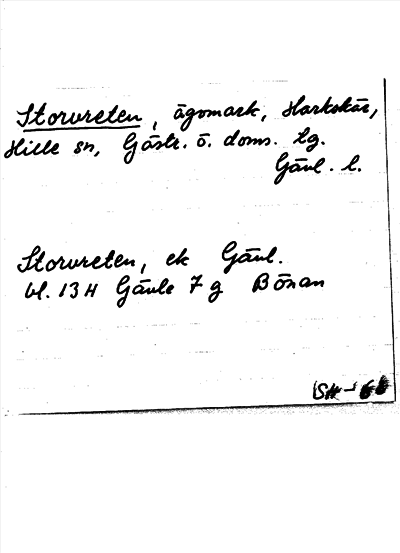 Storvreten, ägomark, Harkskär,
Hille sn, Gästr. ö. doms. tg.
Gävl. l.
Storvreten, ek Gävl.
bl. 13 H Gävle 7 g Bönan